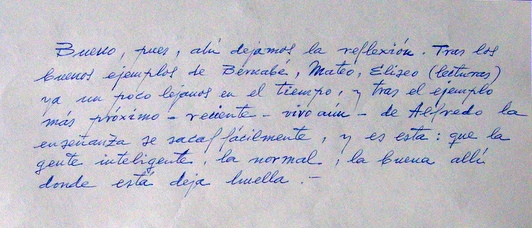 Bueno, pues, ahí dejamos la reflexión. Tras los
buenos ejemplos de Bernabé, Mateo, Eliseo (lecturas)
ya un poco lejanos en el tiempo, y tras el ejemplo
más próximo - reciente - vivo aún - de Alfredo la
enseñanza se saca fácilmente, y es esta: que la
gente inteligente, la normal, la buena allí
donde está deja huella.-